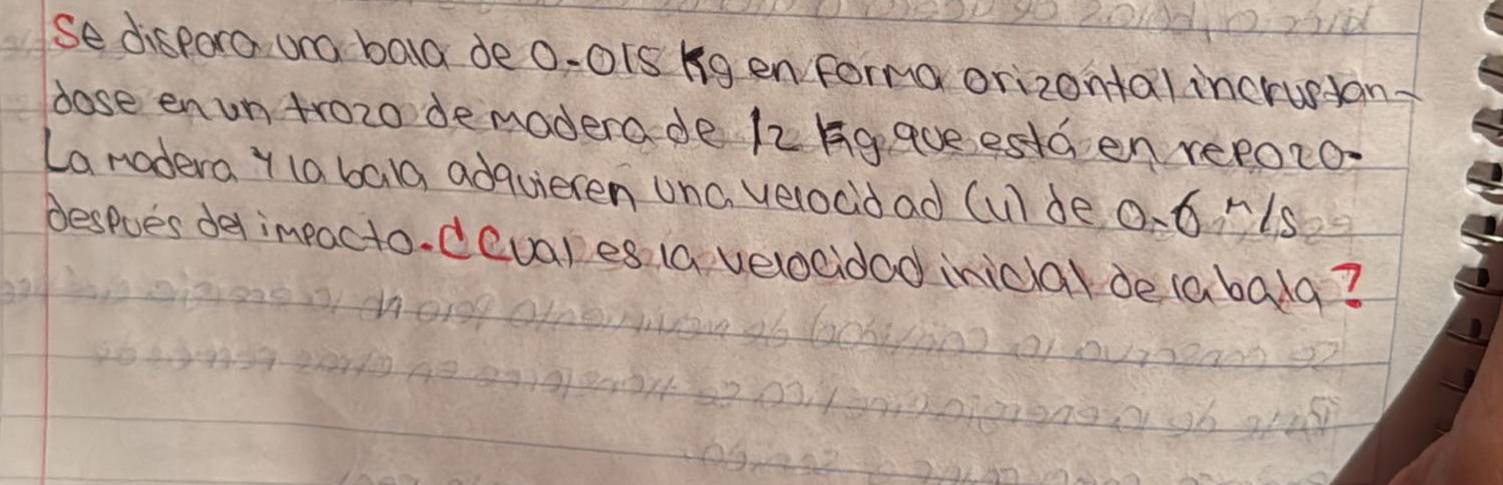 Se dispara una bala de 0.015 Kg en forma orizontal incrustan-
dose en un trozo de madera de 12 Kg que está en repozo.
La madera y la bala adquieren una velocidad (u) de 0.6 m/s
después del impacto. ¿Cual es la velocidad inicial de la bala?